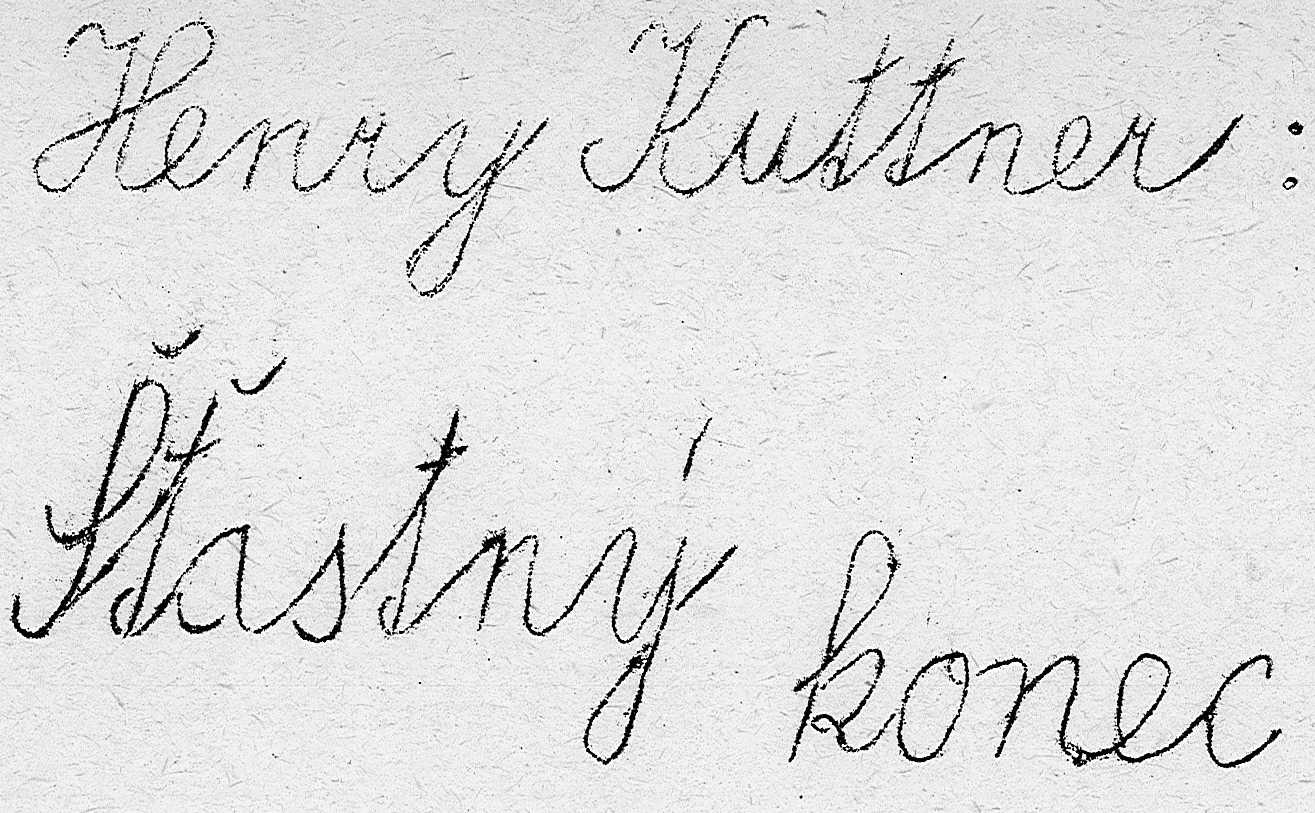 Henry Kuttner:
Šťastný konec